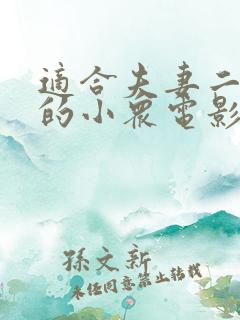 適合夫妻二
的小眾電影
孫文新
未經同意禁止轉載